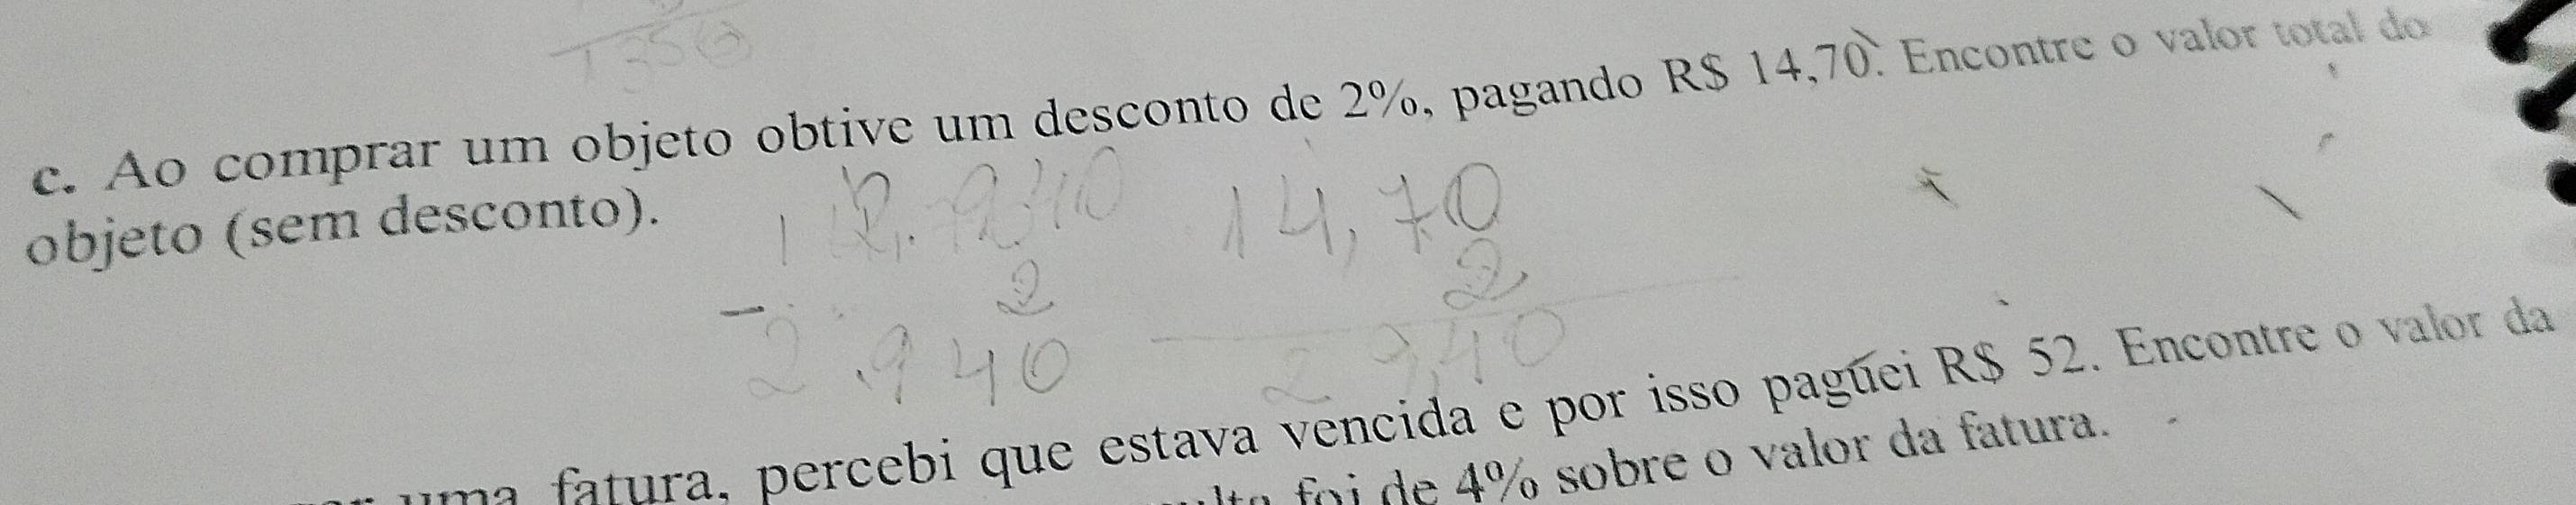 1356
c. Ao comprar um objeto obtive um desconto de 2%, pagando R$ 14,70. Encontre o valor total do
objeto (sem desconto).
14,70
2
2
2.940
29,40
uma fatura, percebi que estava vencida e por isso paguei R$ 52. Encontre o valor da
foi de 4% sobre o valor da fatura.